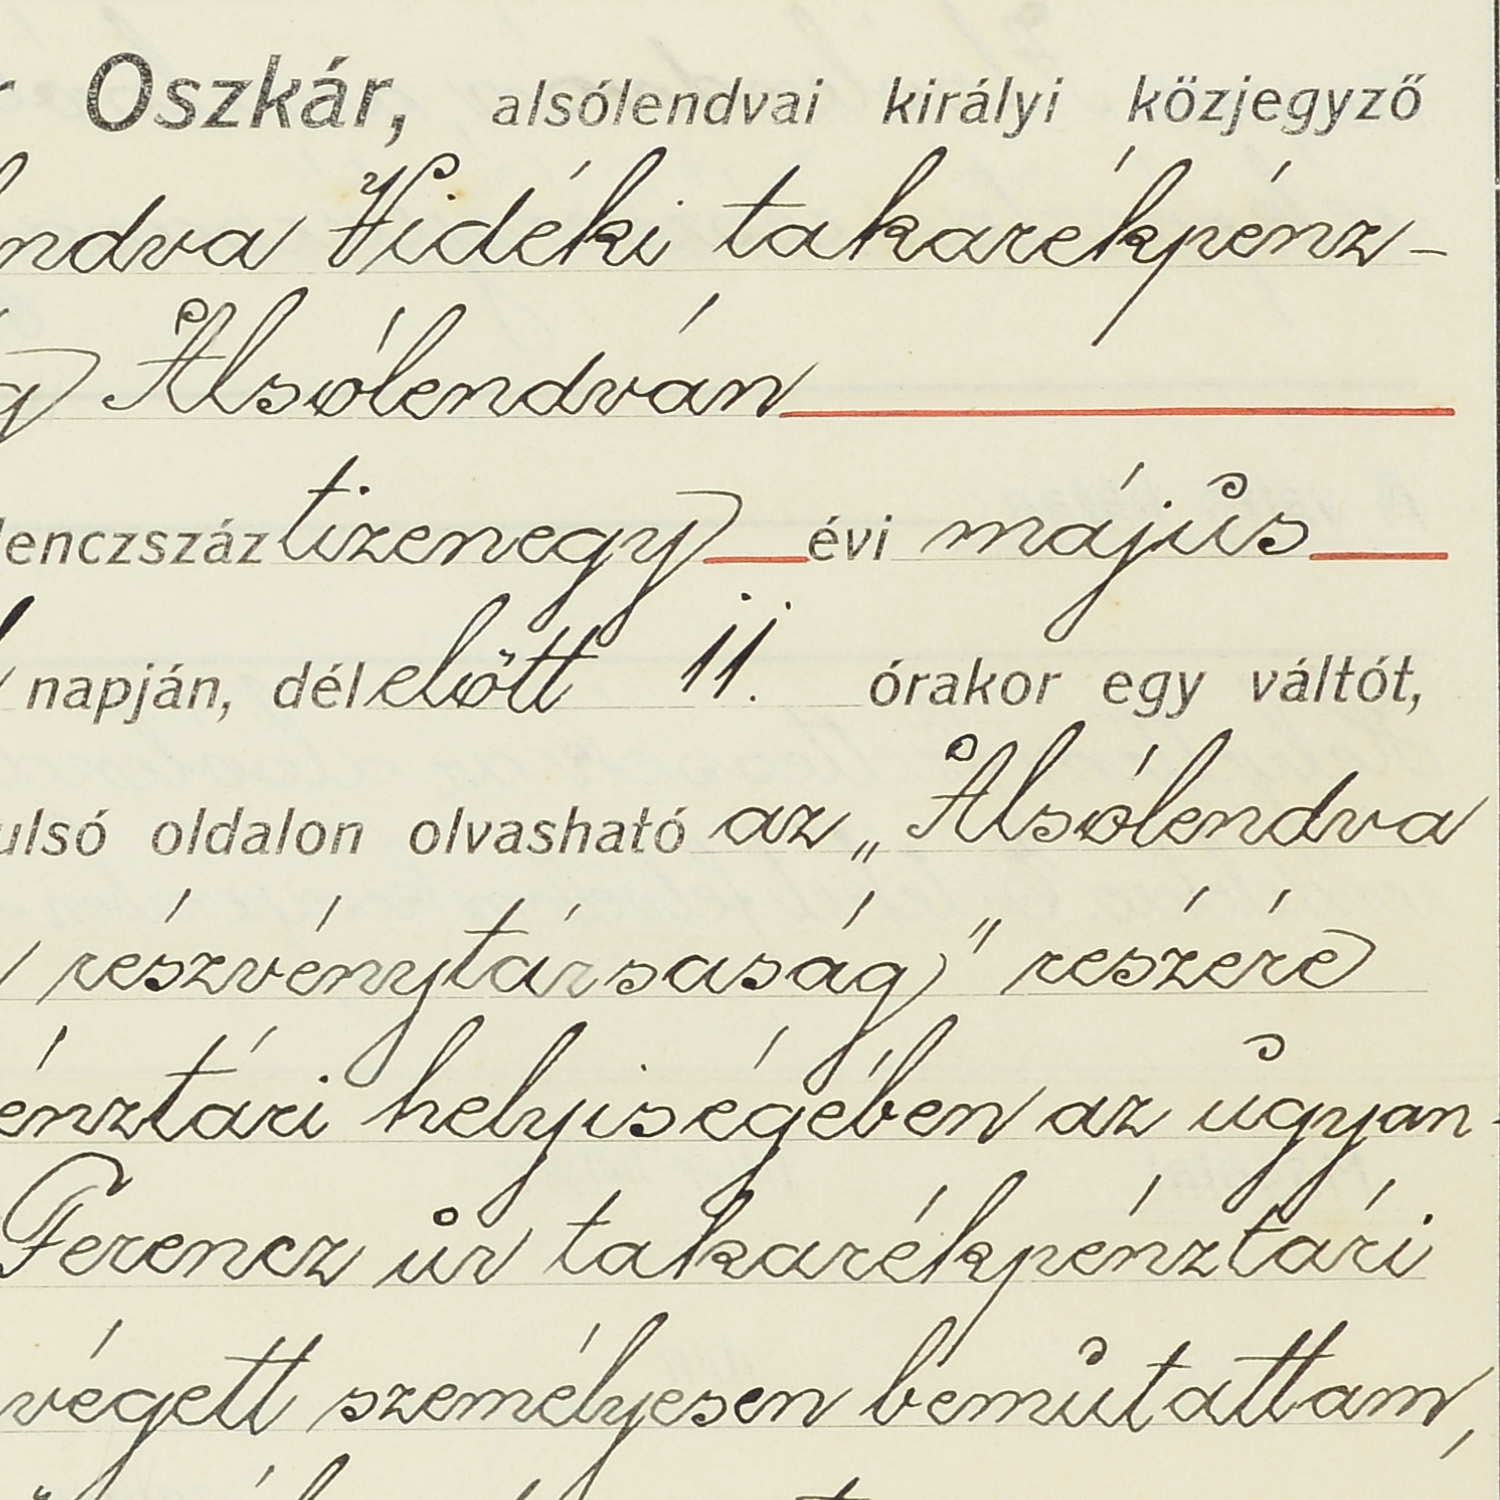 Oszkár, alsólendvai királyi közjegyző
ndva Vidéki takarékpénz-
g Alsólendván
lenczszáz tizenegy évi május
napján, délelőtt 11. órakor egy váltót,
ulsó oldalon olvasható az „Alsólendva
részvénytársaság" részére
énztári helyiségében az ugyan-
Ferencz úr takarékpénztári
végett személyesen bemutattam,